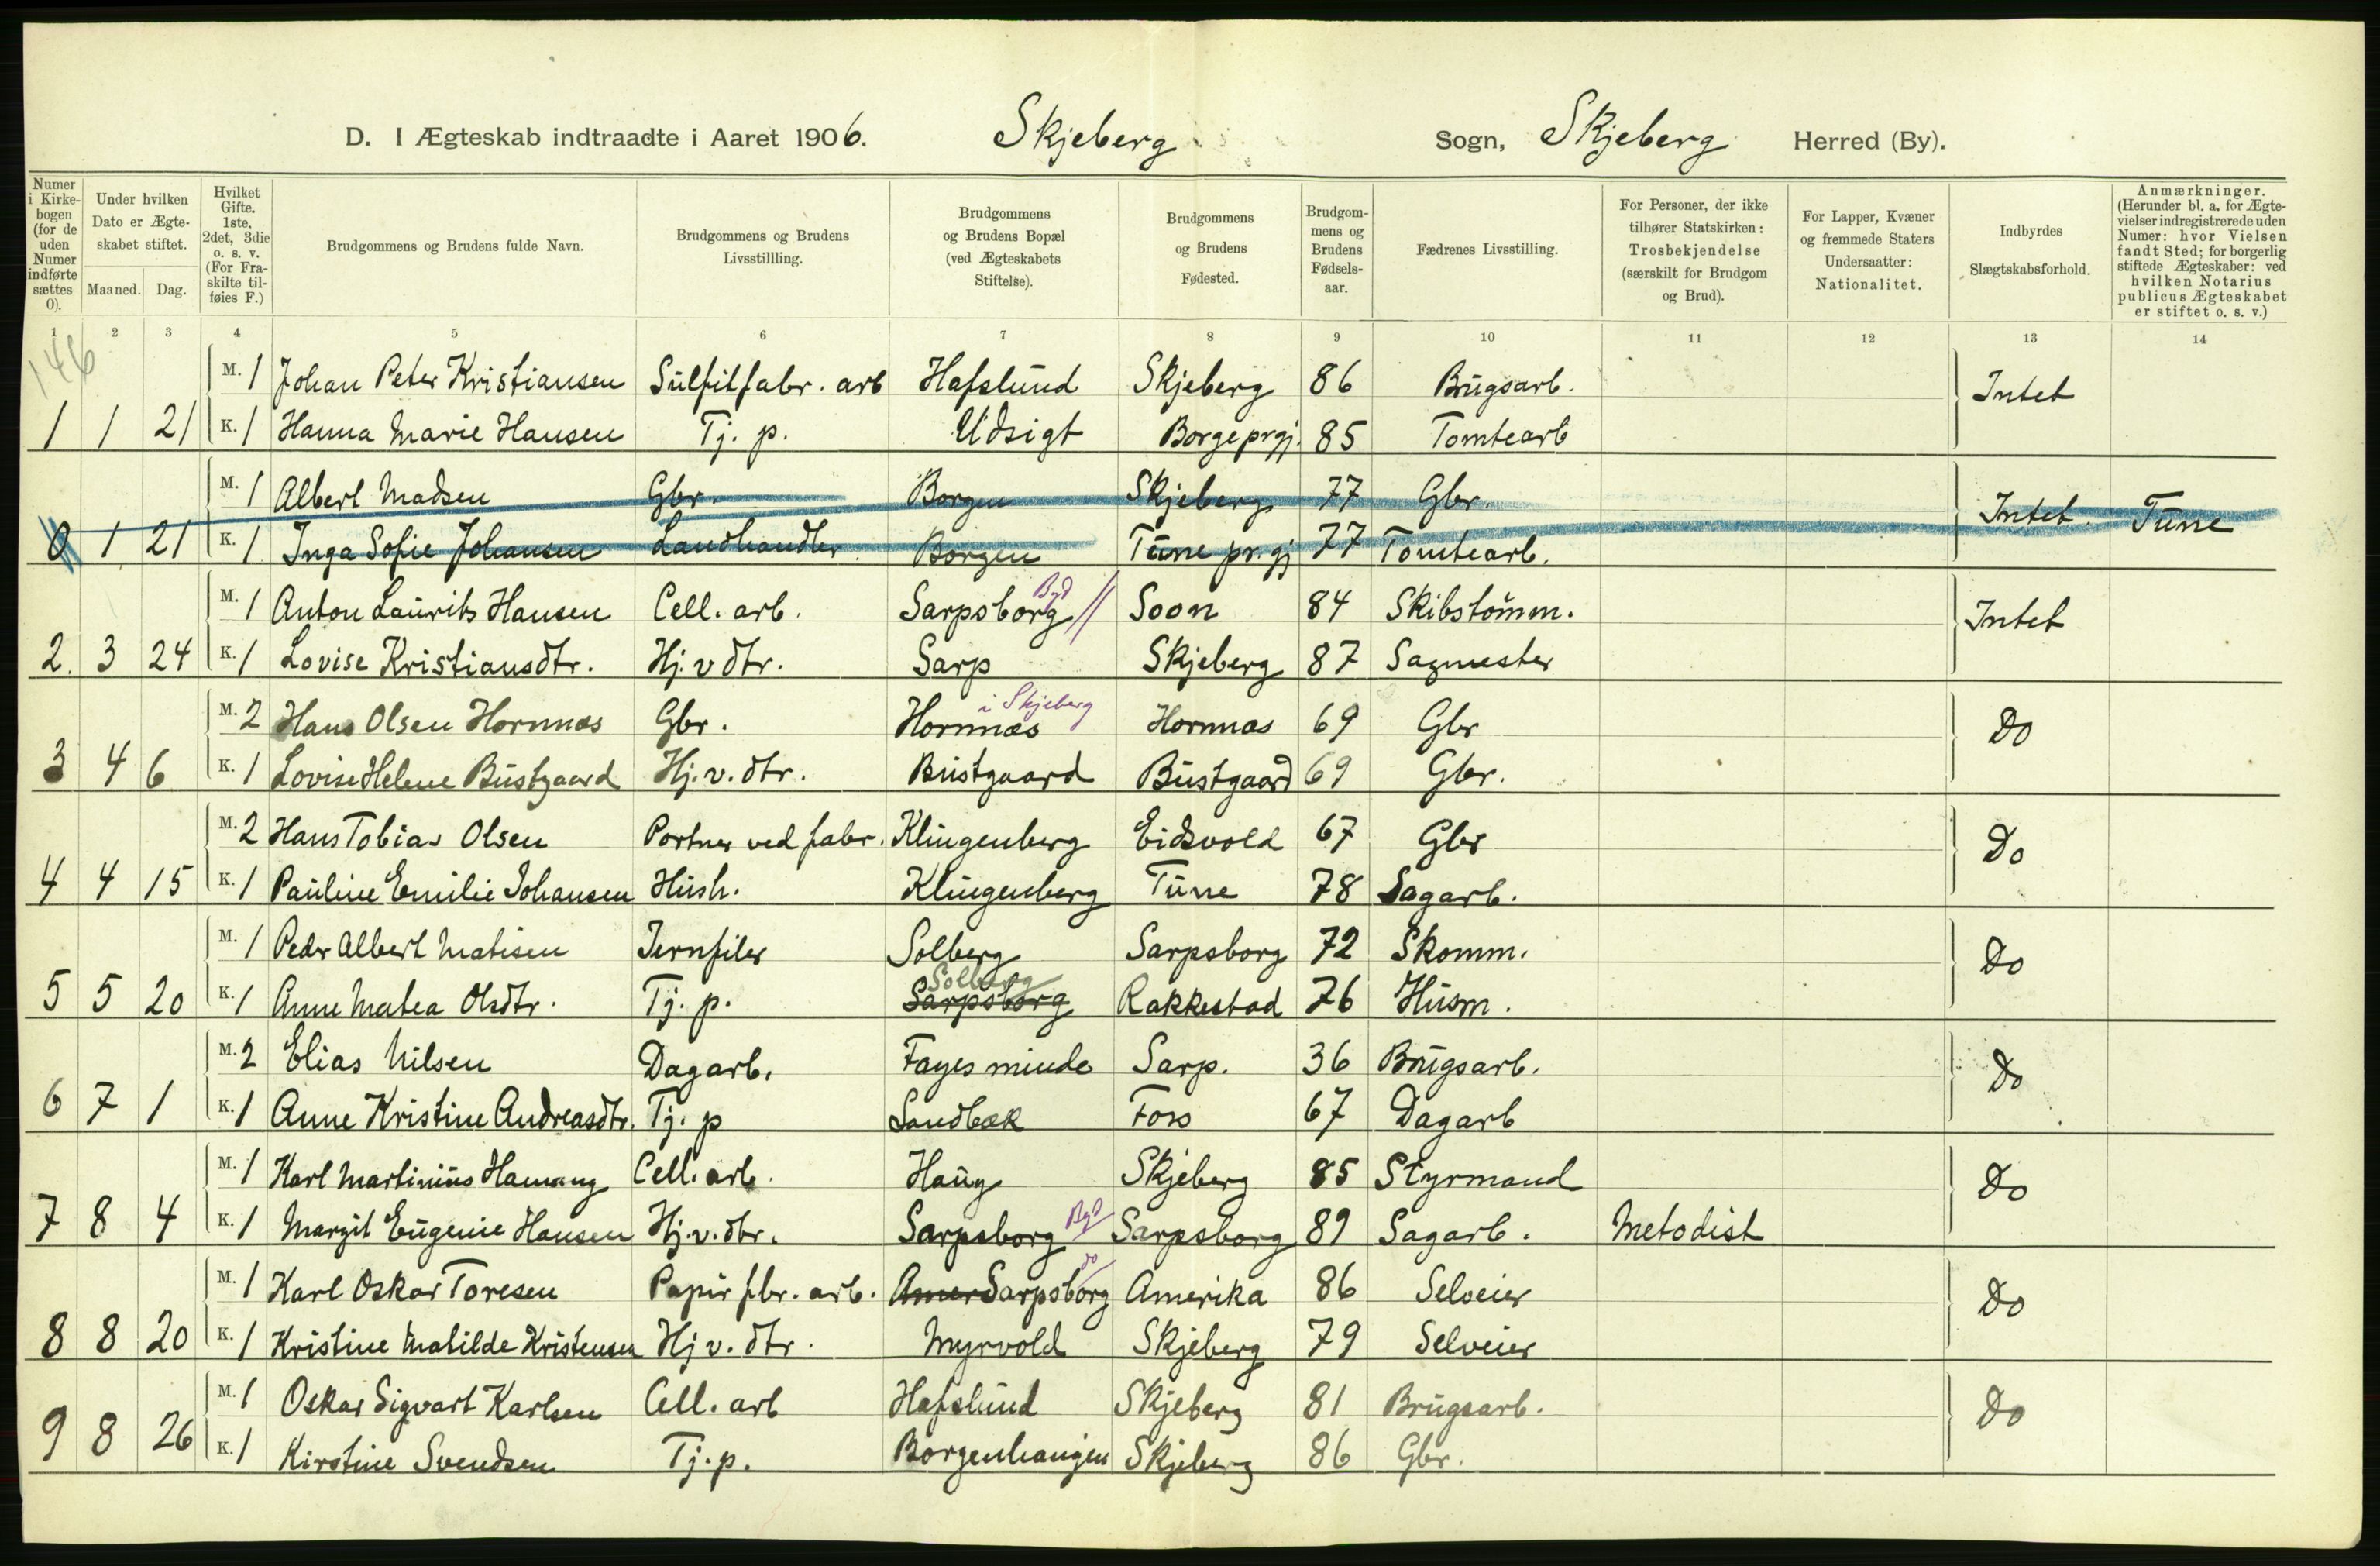 D. I Ægteskab indtraadte i Aaret 1906. Skjeberg Sogn, Skjeberg Herred (By).
Numer i Kirkebogen (for de uden Numer indførte sættes 0).
Under hvilken Dato er Ægteskabet stiftet.
Maaned. Dag.
Hvilket Gifte. 1ste, 2det, 3die o. s. v. (For Fraskilte tilføies F.)
Brudgommens og Brudens fulde Navn.
Brudgommens og Brudens Livsstillling.
Brudgommens og Brudens Bopæl (ved Ægteskabets Stiftelse).
Brudgommens og Brudens Fødested.
Brudgommens og Brudens Fødselsaar.
Fædrenes Livsstilling.
For Personer, der ikke tilhører Statskirken: Trosbekjendelse (særskilt for Brudgom og Brud).
For Lapper, Kvæner og fremmede Staters Undersaatter: Nationalitet.
Indbyrdes Slægtskabsforhold.
Anmærkninger. (Herunder bl. a. for Ægtevielser indregistrerede uden Numer: hvor Vielsen fandt Sted; for borgerlig stiftede Ægteskaber: ved hvilken Notarius publicus Ægteskabet er stiftet o. s. v.)
1 2 3 4 5 6 7 8 9 10 11 12 13 14
146
M. 1 Johan Peter Kristiansen Sulfitfabr. arb Hafslund Skjeberg 86 Brugsarb. Intet
1 1 21 K. 1 Hanna Marie Hansen Tj. p. Udsigt Borge prgj. 85 Tomtearb
M. 1 Albert Madsen Gbr. Borgen Skjeberg 77 Gbr. Intet. Tune
0 1 21 K. 1 Inga Sofie Johansen Landhandler Borgen Tune pr.gj 77 Tomtearb.
M. 1 Anton Laurits Hansen Cell. arb. Sarpsborg Byd // Soon 84 Skibstømm. Intet
2. 3 24 K. 1 Lovise Kristiansdtr. Hj. v dtr. Sarp Skjeberg 87 Sagmester
M. 2 Hans Olsen Hornnæs Gbr. Hornnæs i Skjeberg Hornnæs 69 Gbr Do
3 4 6 K. 1 Lovise Helene Bustgaard Hj. v. dtr. Bustgaard Bustgaard 69 Gbr.
M. 2 Hans Tobias Olsen Portner ved fabr. Klingenberg Eidsvold 67 Gbr Do
4 4 15 K. 1 Pauline Emilie Johansen Hush. Klingenberg Tune 78 Sagarb.
M. 1 Peder Albert Matisen Jernfiler Solberg Sarpsborg 72 Skomm. Do
5 5 20 K. 1 Anne Matea Olsdtr. Tj. p. Sarpsborg Solberg Rakkestad 76 Husm.
M. 2 Elias Nilsen Dagarb. Fayes minde Sarp. 36 Brugsarb. Do
6 7 1 K. 1 Anne Kristine Andreasdtr. Tj. p Sandbæk Foss 67 Dagarb
M. 1 Karl Martinius Hamang Cell. arb. Haug Skjeberg 85 Styrmand Do
7 8 4 K. 1 Margit Eugenie Hansen Hj. v. dtr. Sarpsborg Byd Sarpsborg 89 Sagarb. Metodist
M. 1 Karl Oskar Toresen Papir fbr. arb. Amer Sarpsborg do Amerika 86 Selveier Do
8 8 20 K. 1 Kristine Matilde Kristensen Hj v. dtr. Myrvold Skjeberg 79 Selveier
M. 1 Oskar Sigvart Karlsen Cell. arb Hafslund Skjeberg 81 Brugsarb. Do
9 8 26 K. 1 Kirstine Svendsen Tj. p. Borgenhaugen Skjeberg 86 Gbr.